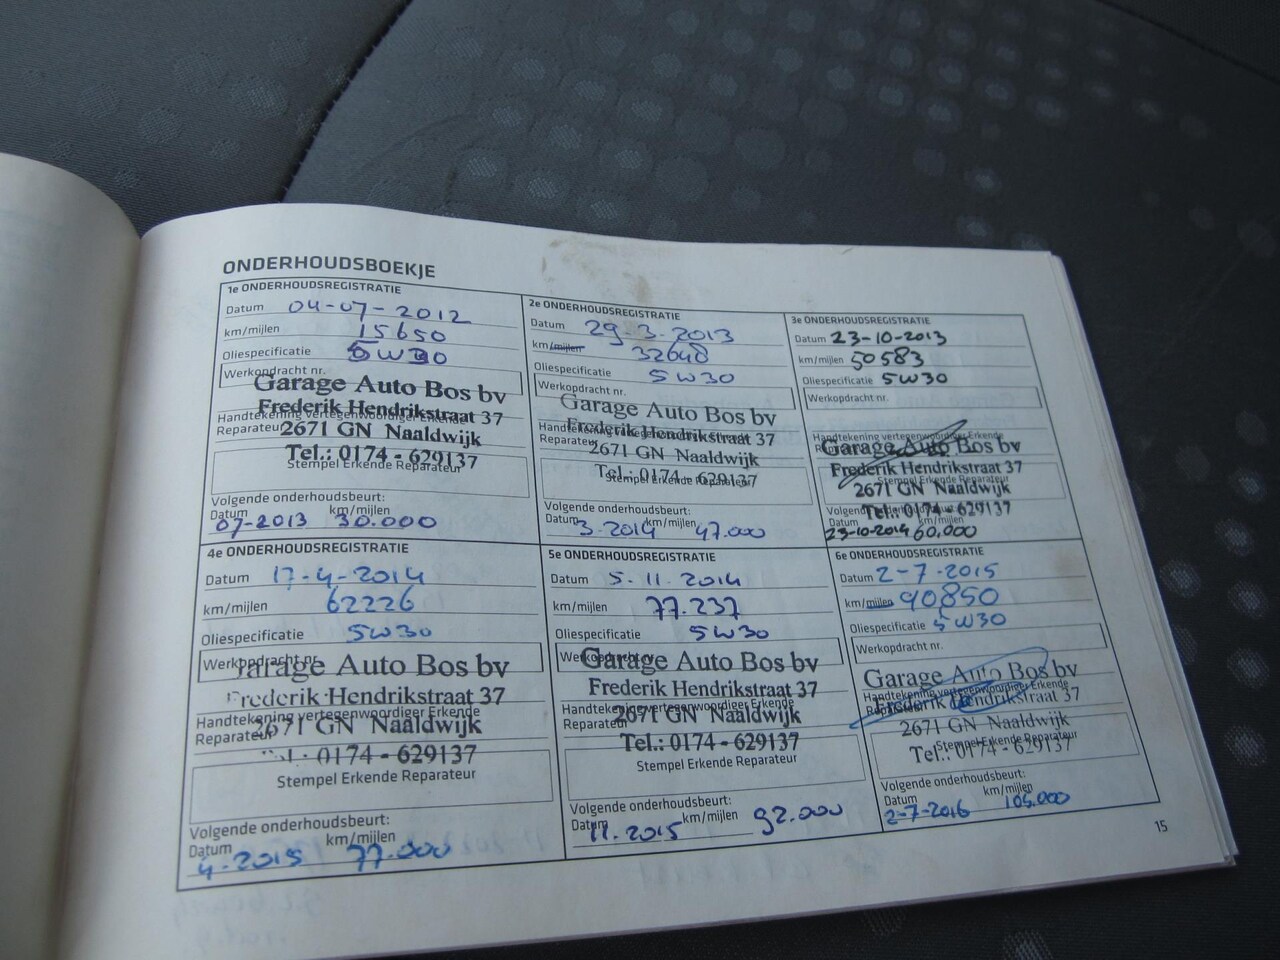 ONDERHOUDSBOEKJE
1e ONDERHOUDSREGISTRATIE
Datum 04-07-2012
km/mijlen 15650
Oliespecificatie 5W30
Werkopdracht nr.
Garage Auto Bos bv
Frederik Hendrikstraat 37
Handtekening vertegenwoordiger Erkende
Reparateur
2671 GN Naaldwijk
Tel.: 0174 - 629137
Stempel Erkende Reparateur
Volgende onderhoudsbeurt:
Datum km/mijlen
07-2013 30.000
2e ONDERHOUDSREGISTRATIE
Datum 29-3-2013
km/mijlen 32648
Oliespecificatie 5W30
Werkopdracht nr.
Garage Auto Bos bv
Frederik Hendrikstraat 37
Handtekening vertegenwoordiger Erkende
Reparateur
2671 GN Naaldwijk
Tel.: 0174 - 629137
Stempel Erkende Reparateur
Volgende onderhoudsbeurt:
Datum km/mijlen
3-2014 47.000
3e ONDERHOUDSREGISTRATIE
Datum 23-10-2013
km/mijlen 50583
Oliespecificatie 5W30
Werkopdracht nr.
Handtekening vertegenwoordiger Erkende
Garage Auto Bos bv
Frederik Hendrikstraat 37
Stempel Erkende Reparateur
2671 GN Naaldwijk
Tel.: 0174 - 629137
Datum km/mijlen
23-10-2014 60,000
4e ONDERHOUDSREGISTRATIE
Datum 17-4-2014
km/mijlen 62226
Oliespecificatie 5W30
Werkopdracht nr.
Garage Auto Bos bv
Frederik Hendrikstraat 37
Handtekening vertegenwoordiger Erkende
Reparateur
2671 GN Naaldwijk
Tel.: 0174 - 629137
Stempel Erkende Reparateur
Volgende onderhoudsbeurt:
Datum km/mijlen
4-2015 77.000
5e ONDERHOUDSREGISTRATIE
Datum 5-11-2014
km/mijlen 77.237
Oliespecificatie 5W30
Werkopdracht nr.
Garage Auto Bos bv
Frederik Hendrikstraat 37
Handtekening vertegenwoordiger Erkende
Reparateur
2671 GN Naaldwijk
Tel.: 0174 - 629137
Stempel Erkende Reparateur
Volgende onderhoudsbeurt:
Datum km/mijlen
11.2015 92.000
6e ONDERHOUDSREGISTRATIE
Datum 2-7-2015
km/mijlen 90850
Oliespecificatie 5W30
Werkopdracht nr.
Garage Auto Bos bv
Handtekening vertegenwoordiger Erkende
Frederik Hendrikstraat 37
2671 GN Naaldwijk
Stempel Erkende Reparateur
Tel.: 0174 - 629137
Volgende onderhoudsbeurt:
Datum km/mijlen
2-7-2016 105.000
15